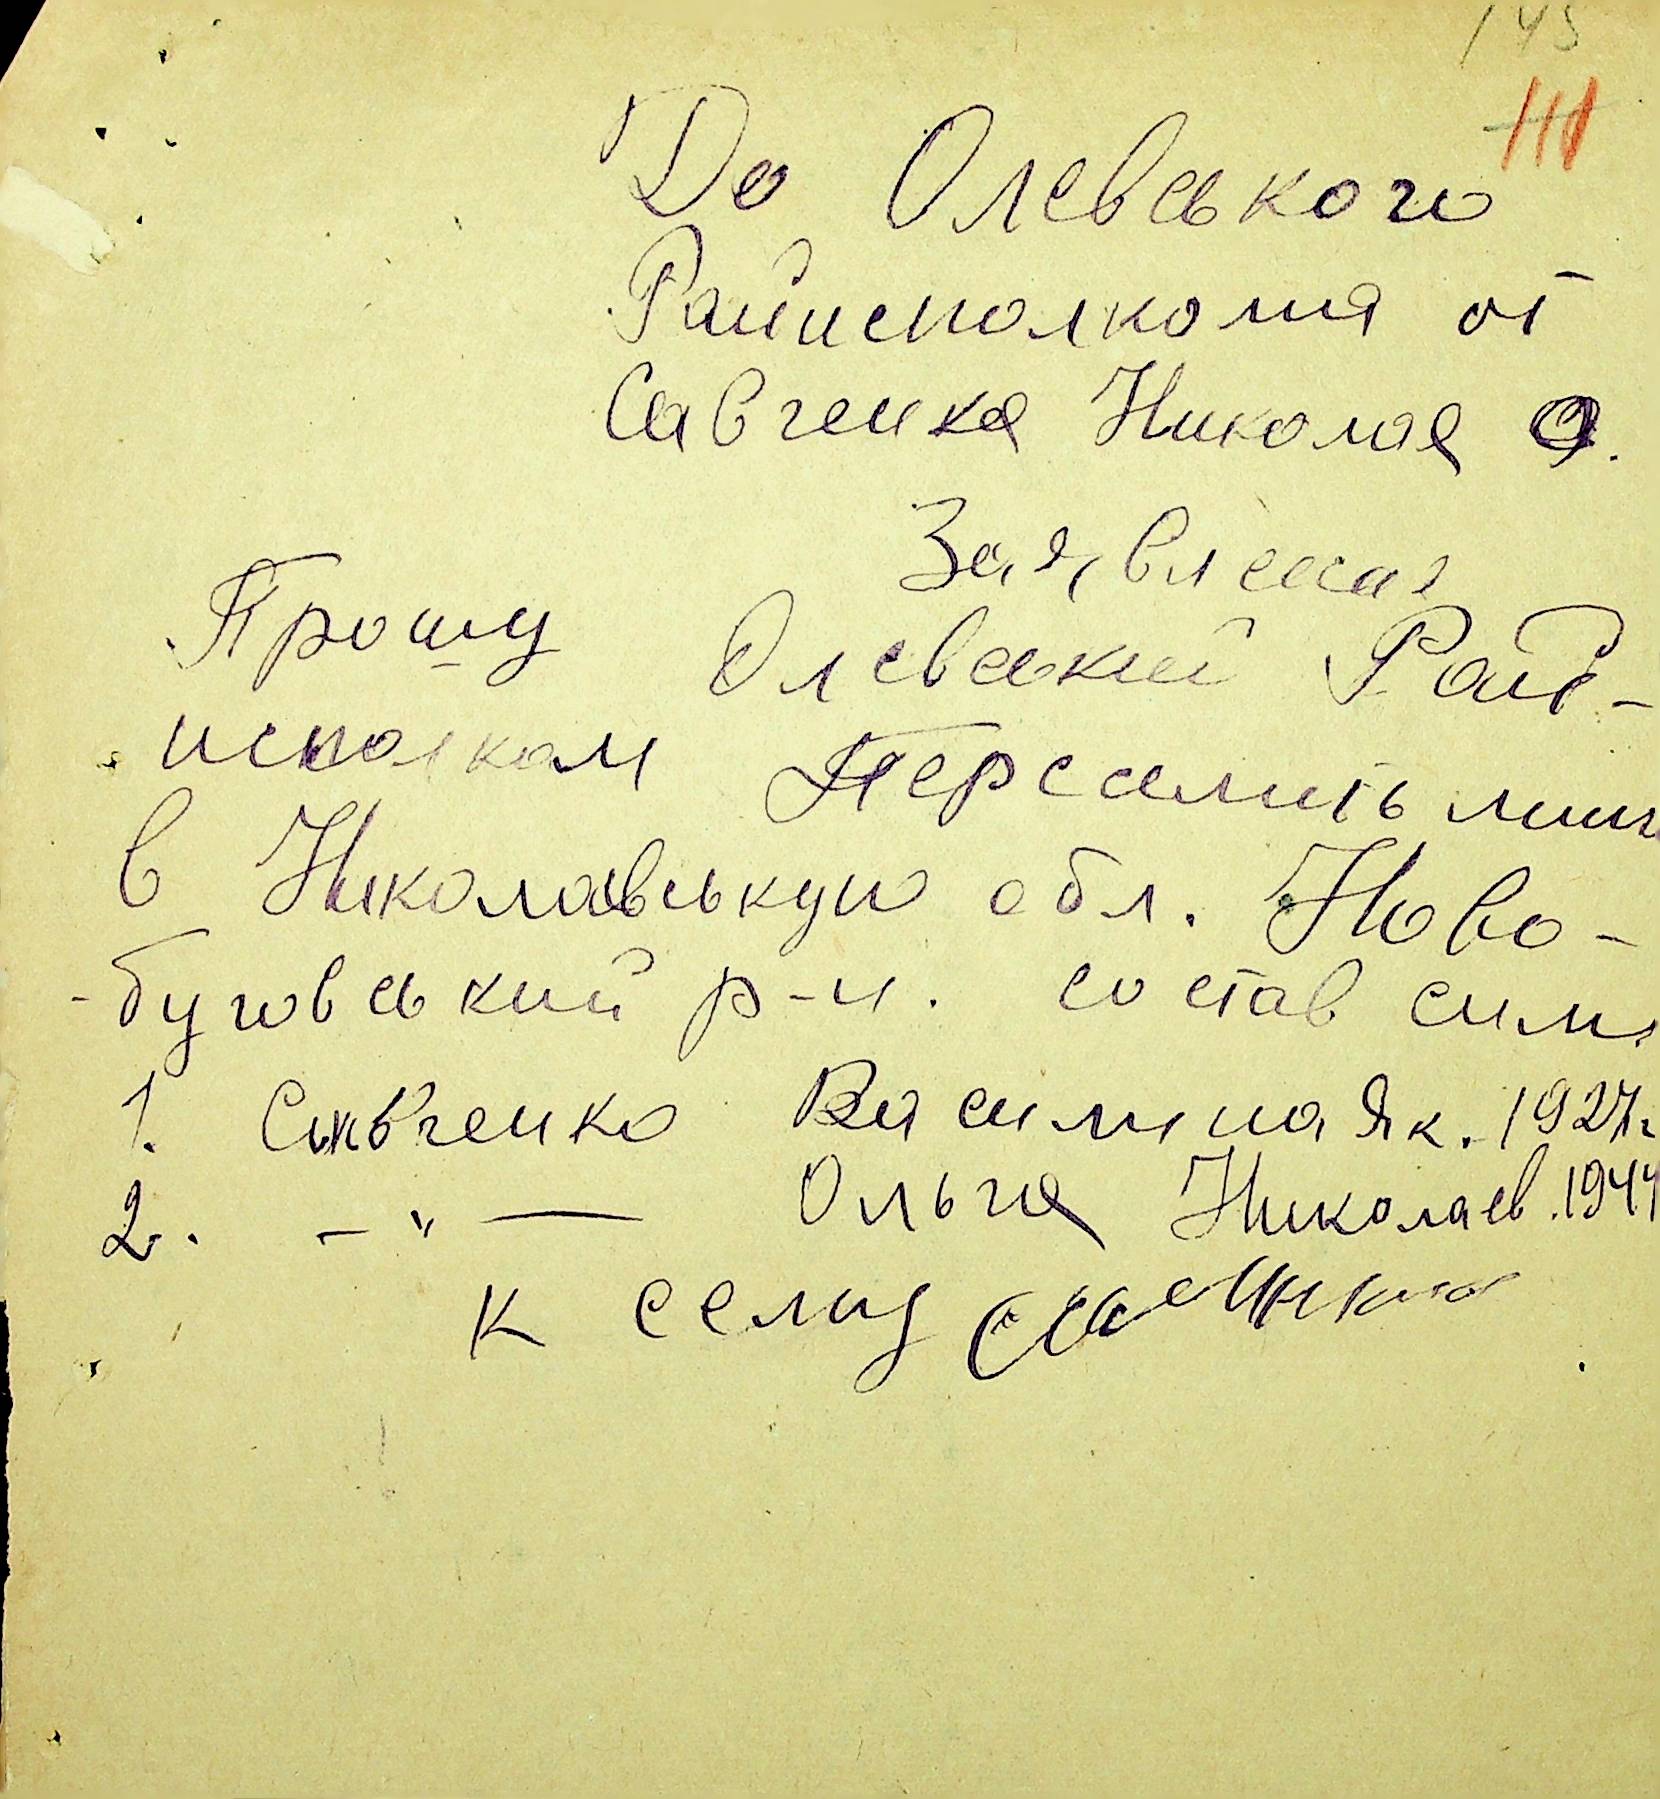 145
111
До Олевського
Райисполкома от
Савченка Николая О.
Заявления
Прошу Олевський Рай-
исполком Переселить мине
в Николавськую обл. Ново-
-буговський р-н. состав сими
1. Савченко Василина Як. 1927г
2. — " — Ольга Николаев. 1944
к сему